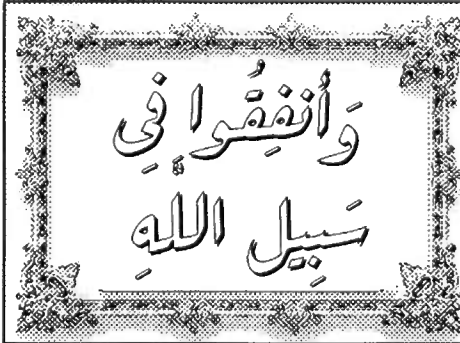 وَأُنفِقُوا فِي
سَبِيلِ اللهِ